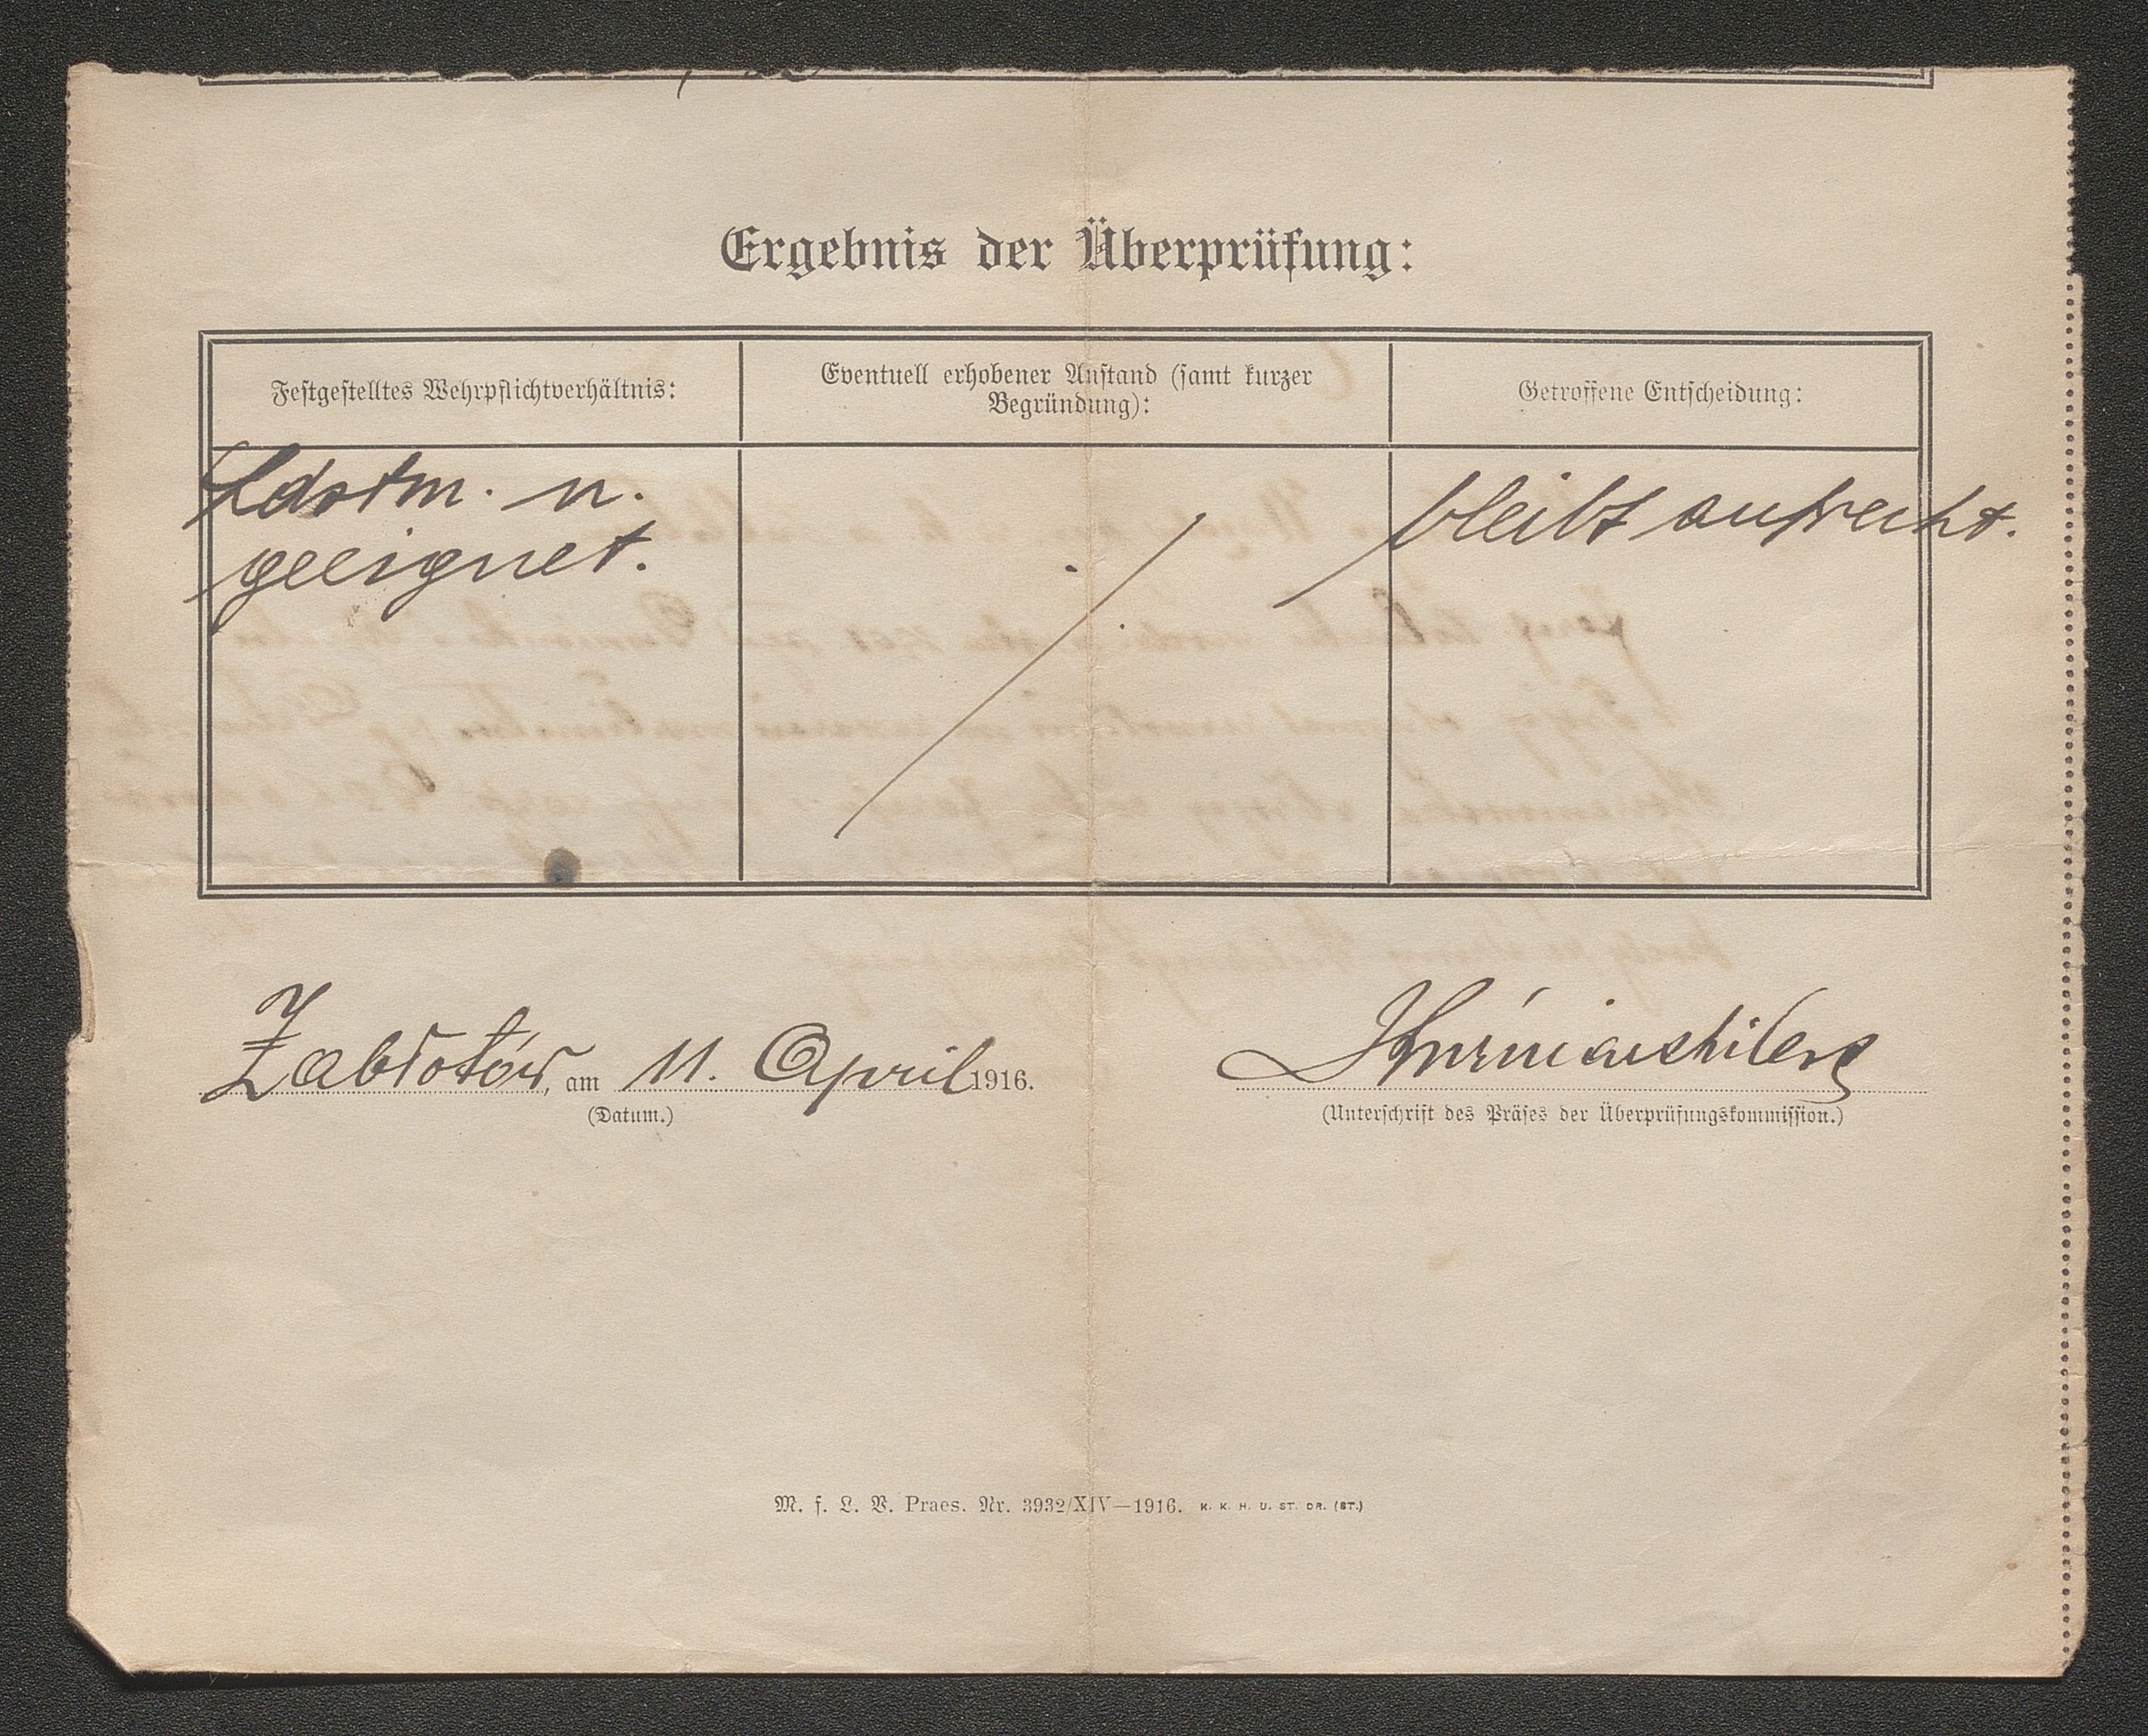 Ergebnis der Überprüfung:
Festgestelltes Wehrpflichtverhältnis:
Eventuell erhobener Anstand (samt kurzer
Begründung):
Getroffene Entscheidung:
Ldstm. n.
geeignet.
bleibt aufrecht.
Zabłotów, am 11. April 1916.
(Datum.)
(Unterschrift des Präses der Überprüfungskommission.)
M. f. L. V. Praes. Nr. 3932/XIV—1916. K. K. H. U. ST. DR. (ST.)